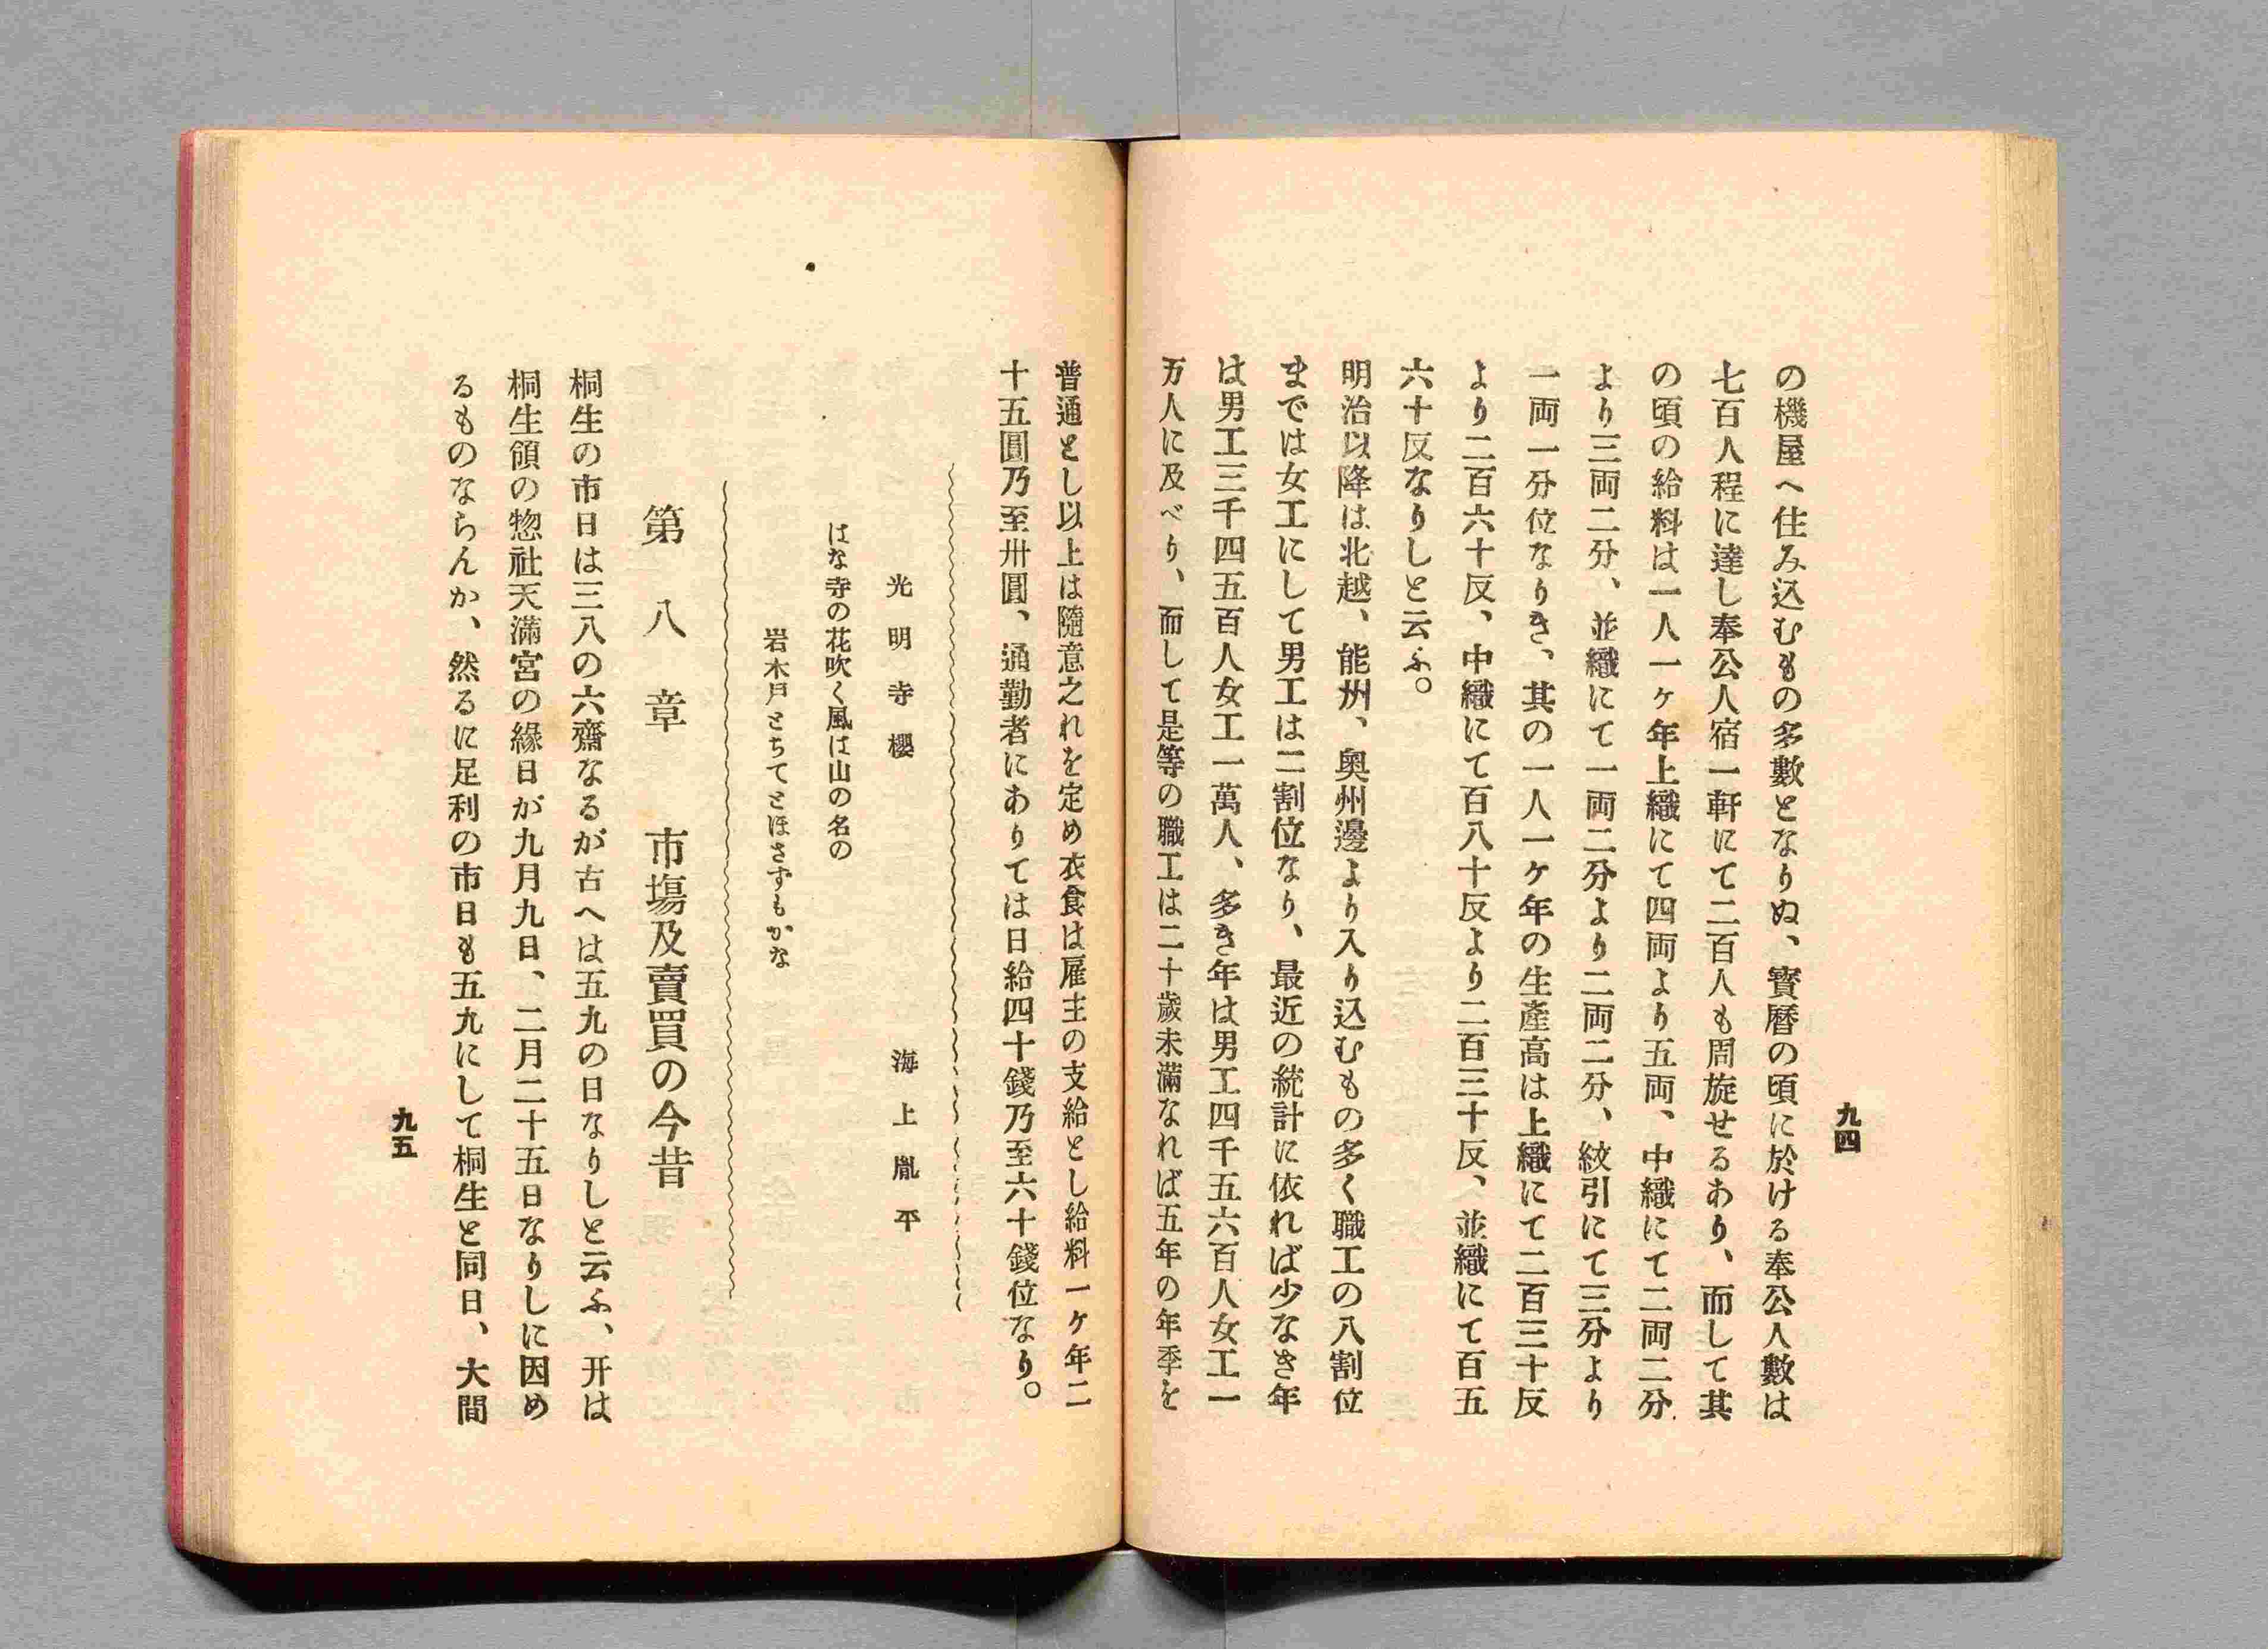 九四
の機屋へ住み込むもの多數となりぬ、寶暦の頃に於ける奉公人數は
七百人程に達し奉公人宿一軒にて二百人も周旋せるあり、而して其
の頃の給料は一人一ヶ年上織にて四両より五両、中織にて二両二分
より三両二分、並織にて一両二分より二両二分、紋引にて三分より
一両一分位なりき、其の一人一ヶ年の生産高は上織にて二百三十反
より二百六十反、中織にて百八十反より二百三十反、並織にて百五
六十反なりしと云ふ。
明治以降は北越、能州、奥州邊より入り込むもの多く職工の八割位
までは女工にして男工は二割位なり、最近の統計に依れば少なき年
は男工三千四五百人女工一萬人、多き年は男工四千五六百人女工一
万人に及べり、而して是等の職工は二十歳未滿なれば五年の年季を
普通とし以上は隨意之れを定め衣食は雇主の支給とし給料一ヶ年二
十五圓乃至卅圓、通勤者にありては日給四十錢乃至六十錢位なり。
光明寺櫻　海上胤平
はな寺の花吹く風は山の名の
岩木戸とちてとほさずもかな
第八章　市塲及賣買の今昔
桐生の市日は三八の六齋なるが古へは五九の日なりしと云ふ、开は
桐生領の惣社天滿宮の緣日が九月九日、二月二十五日なりしに因め
るものならんか、然るに足利の市日も五九にして桐生と同日、大間
九五